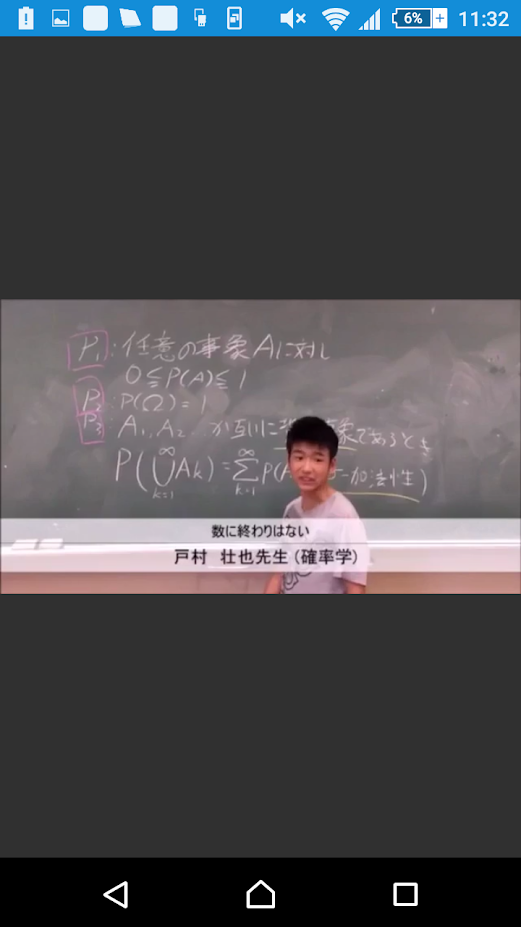 6%
11:32
P₁: 任意の事象Aに対し
0≦P(A)≦1
P₂: P(Ω)=1
P₃: A₁, A₂ … が互いに 事象であるとき
P(⋃_{k=1}^{∞}Ak)=∑_{k=1}^{∞}P( 加法性)
数に終わりはない
戸村 壮也先生(確率学)